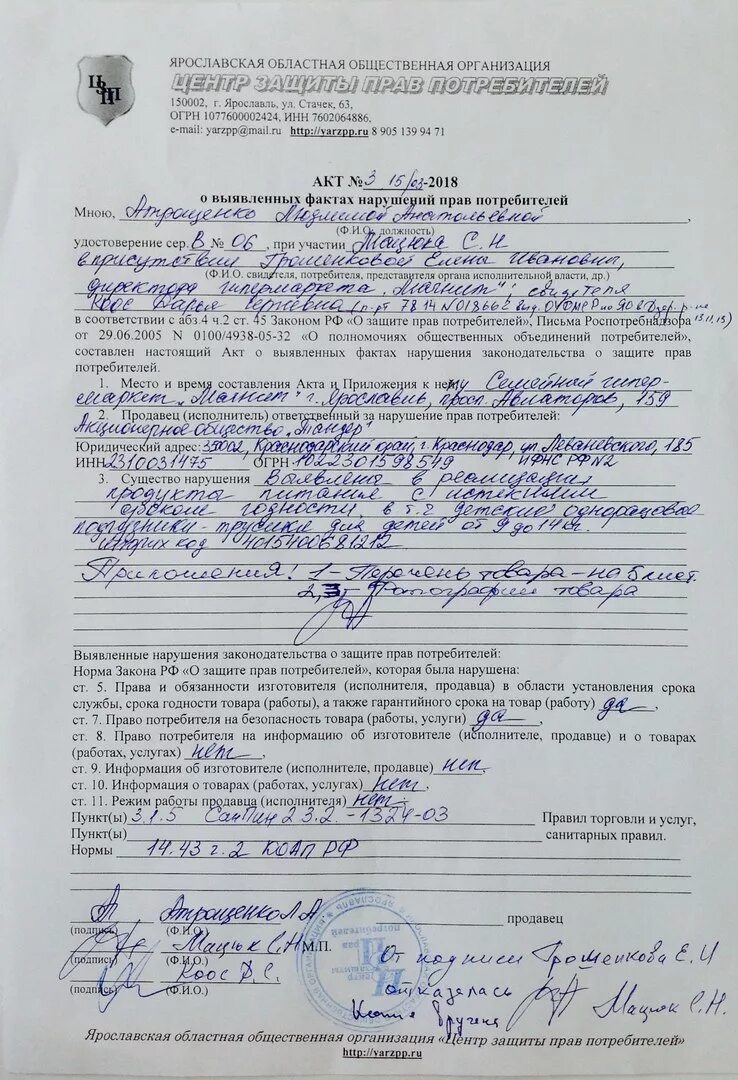 ЦЗПП
ЯРОСЛАВСКАЯ ОБЛАСТНАЯ ОБЩЕСТВЕННАЯ ОРГАНИЗАЦИЯ
ЦЕНТР ЗАЩИТЫ ПРАВ ПОТРЕБИТЕЛЕЙ
150002, г. Ярославль, ул. Стачек, 63,
ОГРН 1077600002424, ИНН 7602064886,
e-mail: yarzpp@mail.ru http://yarzpp.ru 8 905 139 94 71
АКТ № 3 15/03-2018
о выявленных фактах нарушений прав потребителей
Мною, Атрощенко Людмилой Анатольевной,
(Ф.И.О., должность)
удостоверение сер. В № 06, при участии Мацюка С.Н
в присутствии Грошенковой Елены Ивановны,
(Ф.И.О. свидетеля, потребителя, представителя органа исполнительной власти, др.)
директора гипермаркета "Магнит"; свидетеля
Коос Дарья Сергеевна (п-рт 78 14 N 018666 выд. ОУФМС Р по ЯО в Дзер. р-не
в соответствии с абз.4 ч.2 ст. 45 Законом РФ «О защите прав потребителей», Письма Роспотребнадзора 13.11.13)
от 29.06.2005 N 0100/4938-05-32 «О полномочиях общественных объединений потребителей»,
составлен настоящий Акт о выявленных фактах нарушения законодательства о защите прав
потребителей.
1. Место и время составления Акта и Приложения к нему Семейный гипер-
маркет "Магнит" г. Ярославль, просп. Авиаторов, 159
2. Продавец (исполнитель) ответственный за нарушение прав потребителей:
Акционерное общество "Тандер"
Юридический адрес: 35002, Краснодарский край, г. Краснодар, ул. Леваневского, 185
ИНН 2310031475 ОГРН 1022301598549 ИФНС РФ N2
3. Существо нарушения Выявлена в реализации
продукты питания с истекшим
сроком годности, в т.ч детские одноразовые
подгузники - трусики для детей от 9 до 14 кг.
штрих код 4015400681212
Приложения! 1 - Перечень товара - на 5 лист.
2, - Фотографии товара
Выявленные нарушения законодательства о защите прав потребителей:
Норма Закона РФ «О защите прав потребителей», которая была нарушена:
ст. 5. Права и обязанности изготовителя (исполнителя, продавца) в области установления срока
службы, срока годности товара (работы), а также гарантийного срока на товар (работу) да,
ст. 7. Право потребителя на безопасность товара (работы, услуги) да,
ст. 8. Право потребителя на информацию об изготовителе (исполнителе, продавце) и о товарах
(работах, услугах) нет,
ст. 9. Информация об изготовителе (исполнителе, продавце) нет,
ст. 10. Информация о товарах (работах, услугах) нет,
ст. 11. Режим работы продавца (исполнителя) нет.
Пункт(ы) 3.1.5 СанПин 2 3.2. -1324-03 Правил торговли и услуг,
Пункт(ы) санитарных правил.
Нормы 14.43 г. 2 КОАП РФ
Атрощенко Л А продавец
(подпись) (Ф.И.О.)
Мацюк С.Н М.П.
От подписи Грошенкова Е.И
(подпись) (Ф.И.О.)
Коос Д.С.
отказалась
(подпись) (Ф.И.О.)
Копия вручена Мацюк С.Н.
Ярославская областная общественная организация «Центр защиты прав потребителей»
http://yarzpp.ru